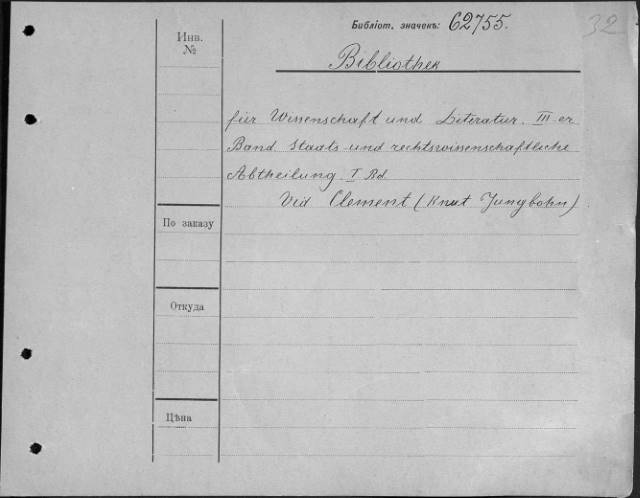 Библіот. значекъ: 62755.
32
Инв.
№
Bibliothek
für Wissenschaft und Literatur. III-er
Band Staats- und rechtswissenschaftliche
Abtheilung. I Bd.
Vid Clement (Knut Jungbohn)
По заказу
Откуда
Цѣна